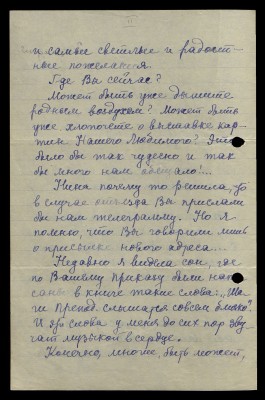 и самые светлые и радост-
ные пожелания.
Где Вы сейчас?
Может быть уже дышите
родным воздухом? Может быть
уже хлопочете о выставке кар-
тин Нашего Любимого? Это
было бы так чудесно и так
бы много нам
Нина почему то решила,
в случае отъезда Вы прислали
бы нам телеграмму. Но я
помню, что Вы говорили лишь
о присылке нового адреса...
Недавно я видела сон, где
по Вашему приказу были напи-
саны в книге такие слова: „Ша-
ги Препод. слышатся совсем близко".
И эти слова у меня до сих пор зву-
чат музыкой в сердце.
Конечно, многие, быть может,